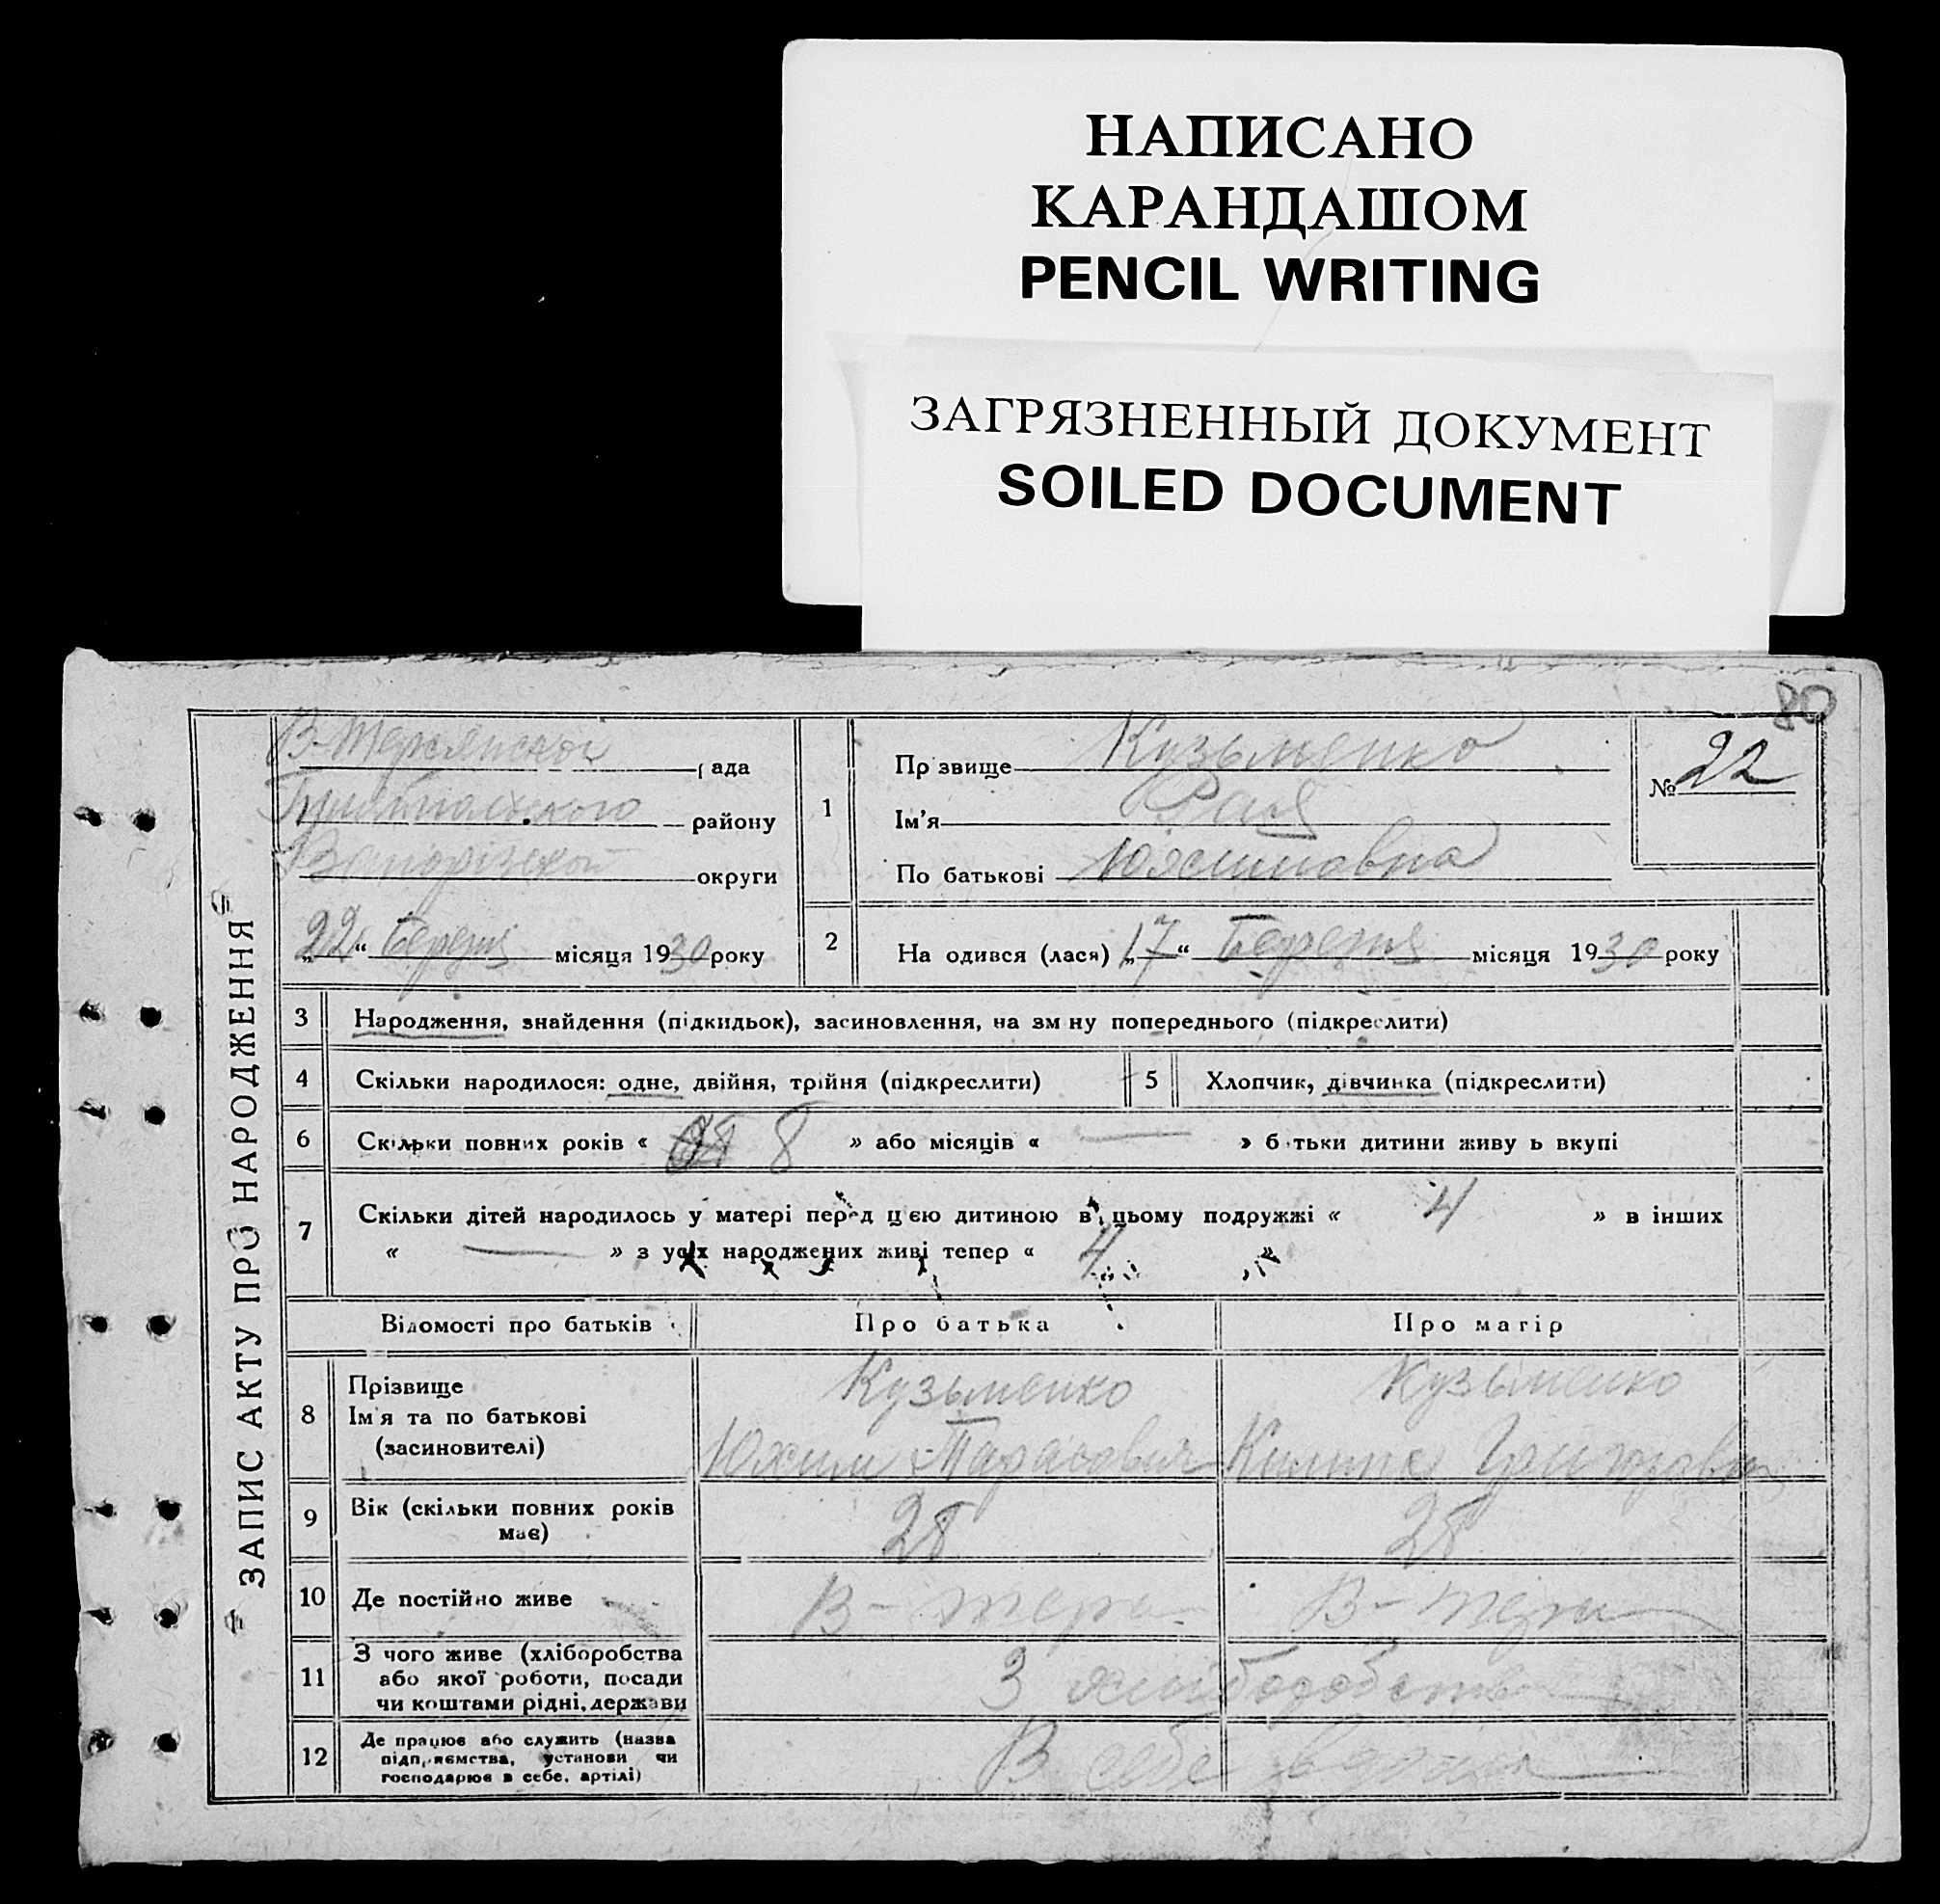 НАПИСАНО
КАРАНДАШОМ
PENCIL WRITING
ЗАГРЯЗНЕННЫЙ ДОКУМЕНТ
SOILED DOCUMENT
80
ЗАПИС АКТУ ПРО НАРОДЖЕННЯ
рада
району
округи
„22“ Березня місяця 1930 року
1
Прізвище Кузьменко
Ім'я Рая
По батькові Юхимовна
№ 22
2 Народився (лася) „17“ Березня місяця 1930 року
3 Народження, знайдення (підкидьок), засиновлення, на зміну попереднього (підкреслити)
4 Скільки народилося: одне, двійня, трійня (підкреслити)
5 Хлопчик, дівчинка (підкреслити)
6 Скільки повних років « 8 » або місяців « — » батьки дитини живуть вкупі
7 Скільки дітей народилось у матері перед цією дитиною в цьому подружжі « 4 » в інших
« — » з усіх народжених живі тепер « 4 »
Відомості про батьків Про батька Про матір
8 Прізвище Кузьменко Кузьменко
Ім'я та по батькові Юхим Тарасович Григоровна
(засиновителі)
9 Вік (скільки повних років має) 28 28
10 Де постійно живе В-Тера В-Тера
11 З чого живе (хліборобства
або якої роботи, посади
чи коштами рідні, держави
З хліборобства
12 Де працює або служить (назва
підприємства, установи чи
господарює в себе, артілі)
В себе